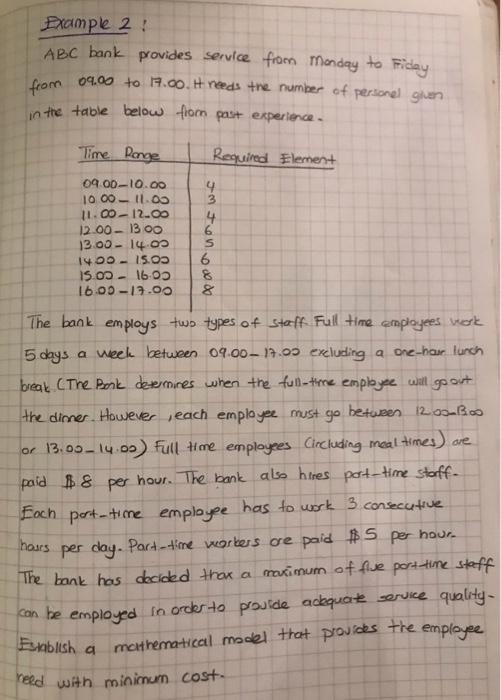 Example 2 :
ABC bank provides service from Monday to Friday
from 09.00 to 17.00. It needs the number of personel given
in the table below from past experience.
Time Range Required Element
09.00-10.00 4
10.00-11.00 3
11.00-12.00 4
12.00-13.00 6
13.00-14.00 5
14.00-15.00 6
15.00-16.00 8
16.00-17.00 8
The bank employs two types of staff. Full time employees work
5 days a week between 09.00-17.00 excluding a one-hour lunch
break (The Bank determines when the full-time employee will go out
the dinner. However, each employee must go between 12.00-13.00
or 13.00-14.00) Full time employees (including meal times) are
paid $8 per hour. The bank also hires part-time staff.
Each part-time employee has to work 3 consecutive
hours per day. Part-time workers are paid $5 per hour.
The bank has decided that a maximum of five part-time staff
can be employed in order to provide adequate service quality.
Establish a mathematical model that provides the employee
need with minimum cost.